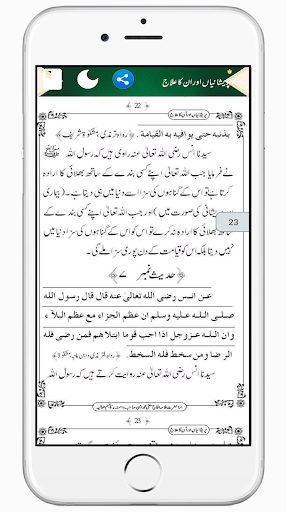 پریشانیاں اور ان کا علاج
22
پریشانیاں اور ان کا علاج
بذنبه حتى يوافيه به القيامة. ﴿رواه ترمذی مشکوٰۃ شریف﴾
سیدنا انس رضی اللہ تعالیٰ عنہ راوی ہیں کہ رسول اللہ ﷺ
نے فرمایا جب اللہ تعالیٰ اپنے کسی بندے کے ساتھ بھلائی کا ارادہ
کرتا ہے تو اس کے گناہوں کی سزا اسے دنیا میں ہی دیتا ہے۔ (بیماری
پریشانی کی صورت میں) اور جب اللہ تعالیٰ اپنے کسی بندے کے
ساتھ بھلائی کا ارادہ نہ کرے تو اس کو گناہوں کی سزا اس کو دنیا میں
23
نہیں دیتا بلکہ اس کو قیامت کے دن پوری سزا ملے گی۔
﴿حدیث نمبر ۷﴾
عن انس رضى الله تعالىٰ عنه قال قال رسول الله
صلى الله عليه وسلم ان عظم الجزاء مع عظم البلآء
وان الله عزوجل اذا احب قوما ابتلاهم فمن رضى فله
الرضا ومن سخط فله السخط.
سیدنا انس رضی اللہ تعالیٰ عنہ روایت کرتے ہیں کہ رسول اللہ
23
پریشانیاں اور ان کا علاج